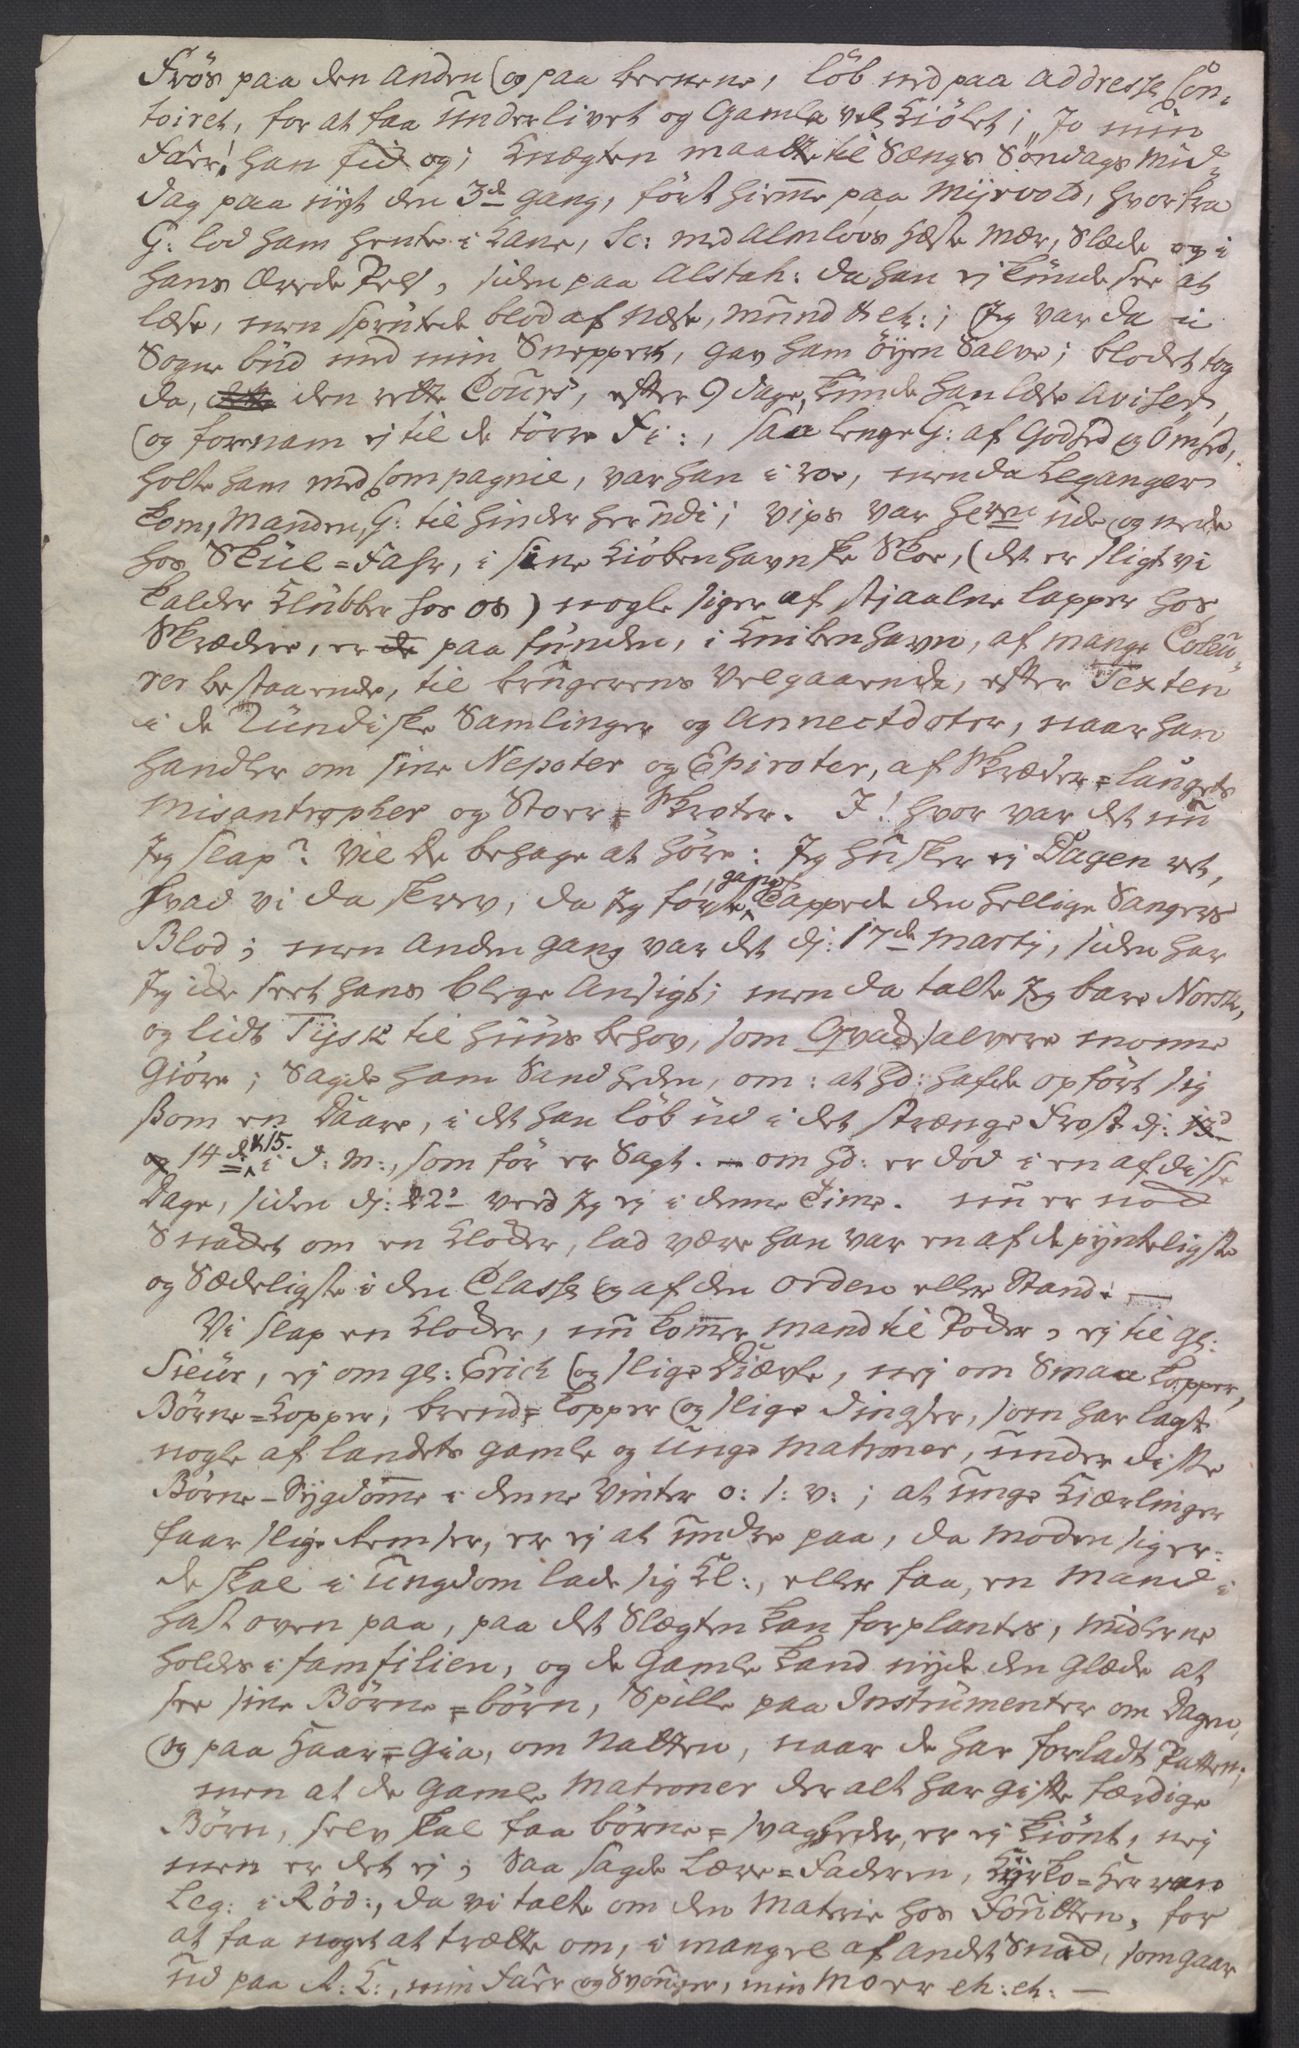 Frös paa den anden og paa beenene, löb ned paa addresse Con-
toiret, for at faa underlivet og Gamle vel Kiölet; "Jo min
Farr! han fik og; Knægten maatte til Sængs Søndags Mid-
dag paa nyt den 3de gang, först hiemme paa Myrvold, hvorfra
G: lod ham hente i Kane, Sc: med Almlovs hæste Mær, Slæde og i
hans Pels, siden paa Alstah: da han ej kunde see at
læse, men sprutede blod af næse, mund etc:; Jeg var da i
Sogne bud med min Sneppert, gav ham öyen Salve; blodet tog
da, den rette Cours, efter 9 dage, kunde han læse Aviser,
og fornam ej til de törre Fi:, saa lenge G: af Godhed og Omhed,
holte ham med Compagnie, var han i roe, men da Leganger
kom, Manden, G: til hinder herudi; vips var herrn ude og nede
hos Skul=Fahr, i sine Kiöbenhavnske Skoe, (det er sligt vi
kalder Klubber hos os) nogle siger af stjaalne lapper hos
Skrædere, er de paa funden, i Kiubenhavn, af mange Coleu-
rer bestaaende, til brugerens Velgaaende, efter Texten
i de Lundiske Samlinger og Annectdoter, naar han
handler om sine Nepoter og Epiroter, af Skræder=laugets
Misantropher og Storr=Skroter. J! hvor var det nu
jeg slap? Vil De behage at höre: Jeg husker ej Dagen ret,
hvad vi da skrev, da jeg förste gang tappede den hellige Sangers
Blod; men anden gang var det dj: 17de Martj, siden har
Jeg ikke seet hans blege Ansigt; men da talte Jeg bare Norsk,
og lidt Tysk til huus behov, som Qvadsalvere monne
Giöre; Sagde ham Sandheden, om: at hd: hafde opfört sig
som en Daare, i det han löb ud i det strænge Frost dj: 13d
og 14de & 15. i d: m:, som för er Sagt. – om hd: er död i en af disse
Dage, siden dj: 22d veed jeg ej i denne Time. nu er nok
Snaddet om en Kloder, lad være han var en af de pynteligste
og Sædeligste i den Classe og af den orden eller Stand: —
Vi slap en Kloder, nu kommer mand til Poder, ej til gl:
Sieur, ej om gl: Erich og slige Diævle, nej om Smaa kopper,
Börne=Kopper, brend=kopper og slige dingser, som har lagt
nogle af landets gamle og unge Matroner, under disse
Börne-Sygdomme i denne Vinter o: s: v:; at unge Kiærlinger
faar slige Remser, er ej at undre paa, da Moden siger:
de skal i ungdom lade sig Kl:, eller faa, en Mand i
hast oven paa, paa det Slægten kan forplantes, midlerne
holdes i famfilien, og de Gamle kand nyde den Glæde at
see sine Börne=börn, Spille paa Instrumenter om Dagen,
og paa Haar=Gia, om Natten, naar de har forladt Patten;
men at de Gamle Matroner der alt har gifte færdige
Börn, selv skal faa börne=svagheder, er ej skiönt, nej
men er det ej; Saa sagde Lære=Faderen, Kyrko=Herren
Leg: i Röd:, da vi talte om den Materie hos Fouten, for
at faa noget at trætte om, i mangel af andet Snak, som gaar
ud paa A: K:, min Farr og Svouger, min Moer etc: etc: —